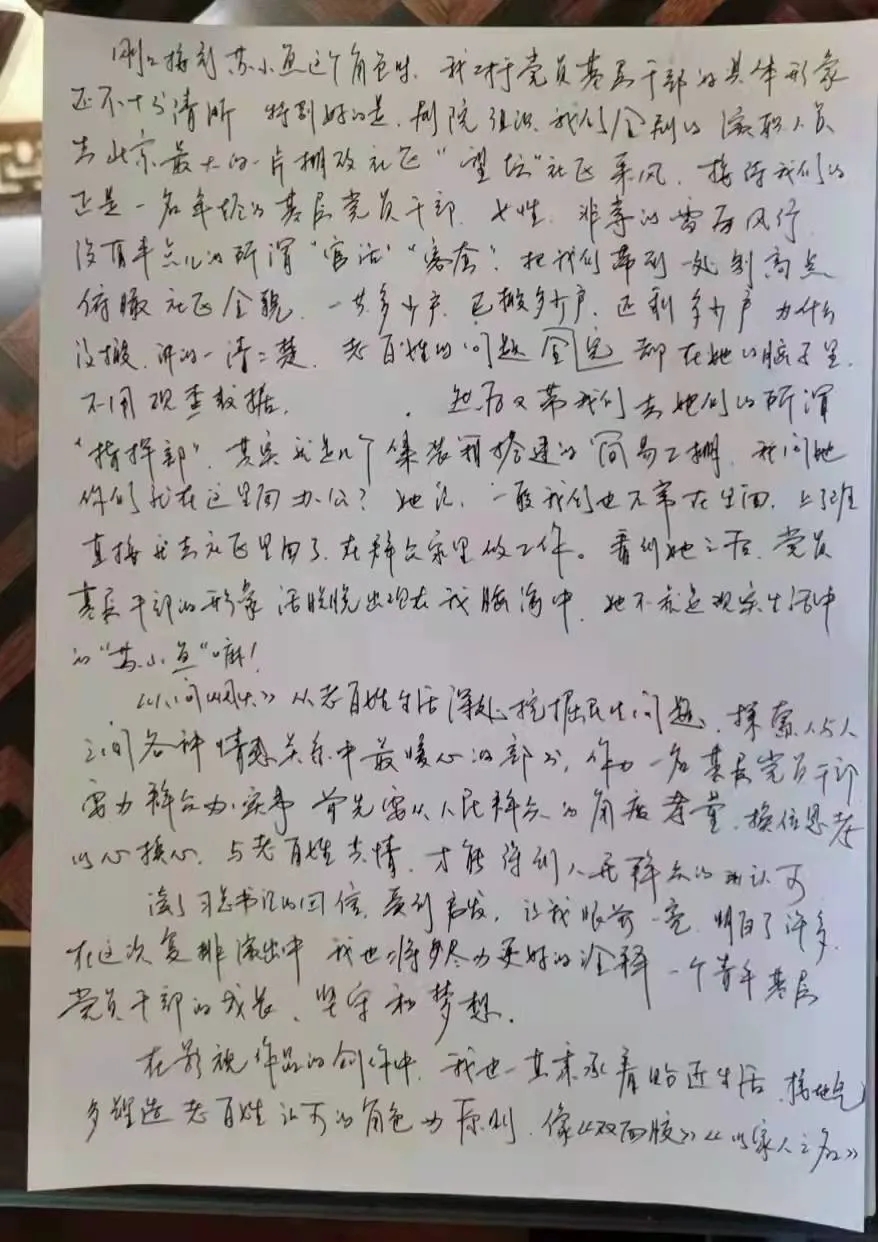 刚接到苏小鱼这个角色时，我对于党员基层干部的具体形象
还不十分清晰 特别好的是，剧院组织我们全剧的演职人员
去北京最大的一片棚改社区“望坛”社区采风，接待我们的
正是一名年轻的基层党员干部，女性，非常的雷厉风行
没有半点儿的所谓“官话”“客套”，把我们带到一处制高点
俯瞰社区全貌，一共多少户，已搬多少户，还剩多少户 为什么
没搬，讲的一清二楚，老百姓的问题 都在她的脑子里，
不用现查数据。 然后又带我们去她们的所谓
“指挥部”，其实就是几个集装箱搭建的简易工棚，我问她
你们就在这里面办公？她说，一般我们也不常在里面，上班
直接就去社区里面了，在群众家里做工作。看到她之后，党员
基层干部的形象活脱脱出现在我脑海中，她不就是现实生活中
的“苏小鱼”嘛！
从老百姓生活深处挖掘民生问题，探索人与人
之间各种情感关系中最暖心的部分，作为一名基层党员干部
要为群众办实事 首先要从人民群众的角度考量，换位思考
以心换心，与老百姓共情，才能得到人民群众的认可
读了习总书记的回信，受到启发，让我眼前一亮，明白了许多，
在这次复排演出中 我也将尽力更好的诠释一个青年基层
党员干部的成长、坚守和梦想。
在影视作品的创作中，我也一直秉承着贴近生活，接地气
多塑造老百姓认可的角色为原则，像《双面胶》《以家人之名》